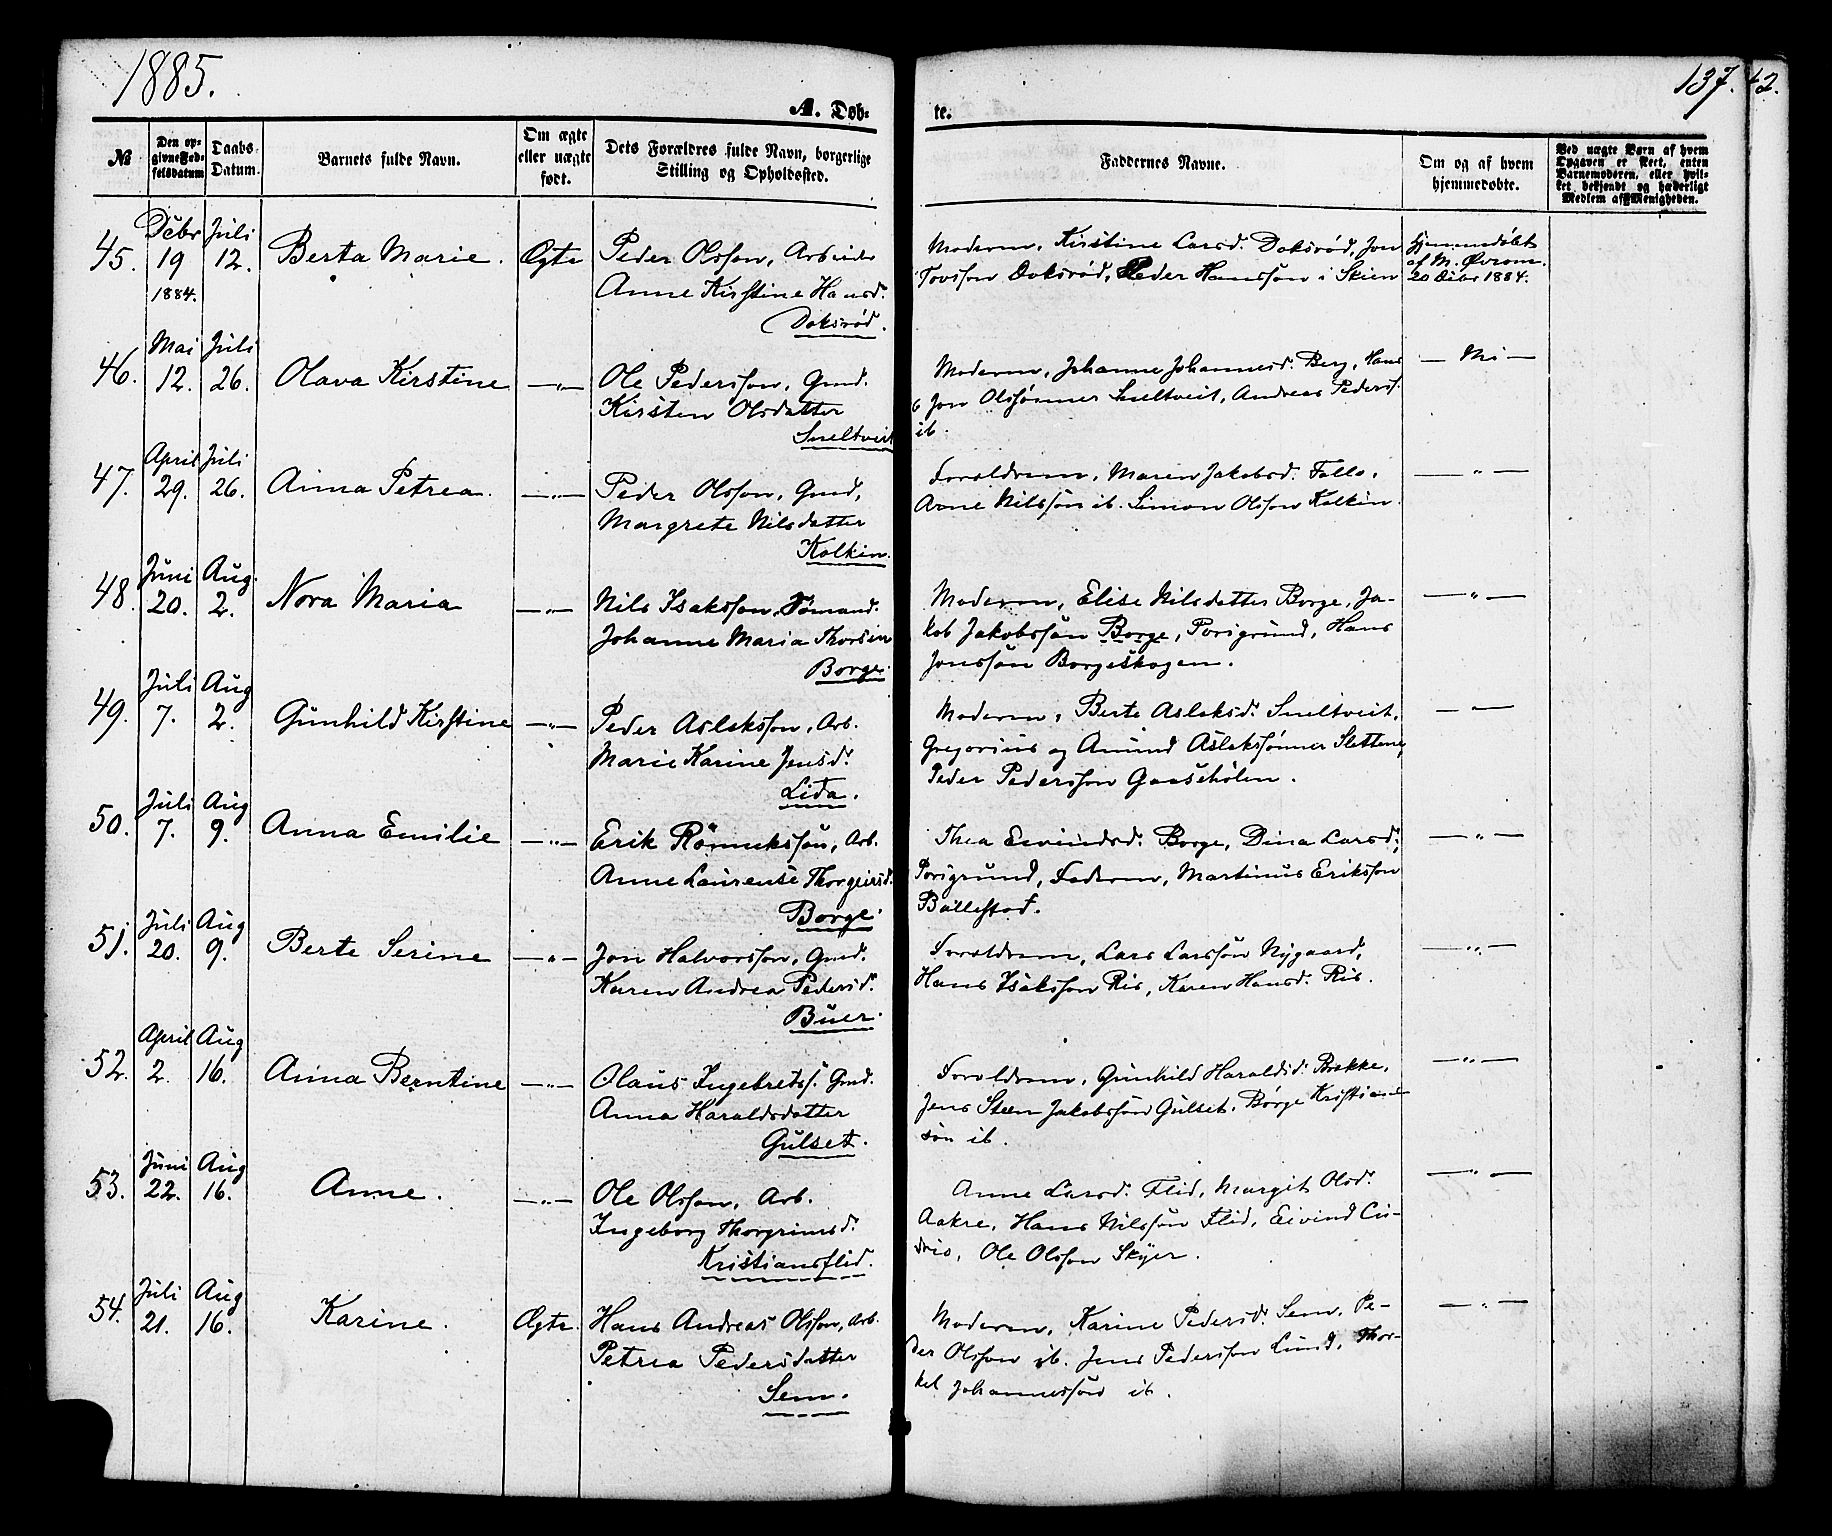 1885.
137.
42.
A. Døb-
te.
№
Den op-
givne Fød-
selsdatum
Daabs-
Datum.
Barnets fulde Navn.
Om ægte
eller uægte
født.
Dets Forældres fulde Navn, borgerlige
Stilling og Opholdssted.
Faddernes Navne.
Om og af hvem
hjemmedøbte.
Ved uægte Børn af hvem
Opgaven er skeet, enten
Barnemoderen, eller hvil-
ket bekjendt og hæderligt
Medlem af Menigheden.
45.
Debr
19
1884.
Juli
12.
Berta Marie.
Ægte
Peder Olsson, Arbeider
Anne Kirstine Hansd.
Doksrød.
Moderen, Kirstine Larsd. Doksrød, Jon
Tovsson Doksrød, Peder Hanssøn i Skien
Hjemmedøbt
af M. Øvrom.
20 Debr 1884.
46.
Mai
12.
Juli
26.
Olava Kirstine
—„—
Ole Pedersson, Gmd.
Kirsten Olsdatter
Sneltveit
Moderen, Johanne Johannesd. Berg, Hans
o Jon Olssønner Sneltveit, Andreas Peders.
ib.
— Nei —
47.
April
29.
Juli
26.
Anna Petrea.
—„—
Peder Olsson, Gmd,
Margrete Nilsdatter
Kolkin.
Forældrene, Maren Jakobsd. Follo,
Arne Nilssøn ib. Simon Olsson Kolkin.
—„—
48.
Juni
20.
Aug.
2.
Nora Maria
—„—
Nils Isaksson, Sømand.
Johanne Maria Thorsen
Borge.
Moderen, Elise Nilsdatter Borge, Ja-
kob Jakobssøn Borge, Porsgrund, Hans
Jonssøn Borgeskogen.
—„—
49.
Juli
7.
Aug
2.
Gunhild Kirstine
—„—
Peder Aslaksson, Arb.
Marie Karine Jensd.
Lida.
Moderen, Berte Aslaksd. Sneltveit,
Gregorius og Amund Aslakssønner Slettene,
Peder Pedersson Gaaseholen.
—„—
50.
Juli
7.
Aug
9.
Anna Emilie
—„—
Erik Rønnikssøn, Arb.
Anne Laurense Thorgeirsd.
Borge.
Thea Eivindsd. Borge, Dina Larsd,
Porsgrund, Faderen, Martinus Eriksson
Ballestad.
—„—
51.
Juli
20.
Aug
9.
Berte Serine
—„—
Jon Halvorsson, Gmd.
Karen Andrea Pedersd.
Buer.
Forældrene, Lars Larssøn Nygaard,
Hans Isaksson Ris, Karen Hansd. Ris.
—„—
52.
April
2.
Aug
16.
Anna Berntine
—„—
Olaus Ingebrets. Gmd.
Anna Haraldsdatter
Gulset.
Forældrene, Gunhild Haraldsd. Brekke,
Jens Steen Jakobssøn Gulset. Børge Kristian-
søn ib.
—„—
53.
Juni
22.
Aug
16.
Anne.
—„—
Ole Olsson, Arb.
Ingeborg Thorgrimsd.
Kristiansflid.
Anne Larsd. Flid, Margit Olsd.
Aakre, Hans Nilssøn Flid, Eivind
Ole Olsson Skyer.
—„—
54.
Juli
21.
Aug
16.
Karine.
Ægte.
Hans Andreas Olsson, Arb.
Petrea Pedersdatter
Sem.
Moderen, Karine Pedersd. Sem, Pe-
der Olsson ib. Jens Pedersson Lund, Thor-
kel Johannessøn ib.
—„—